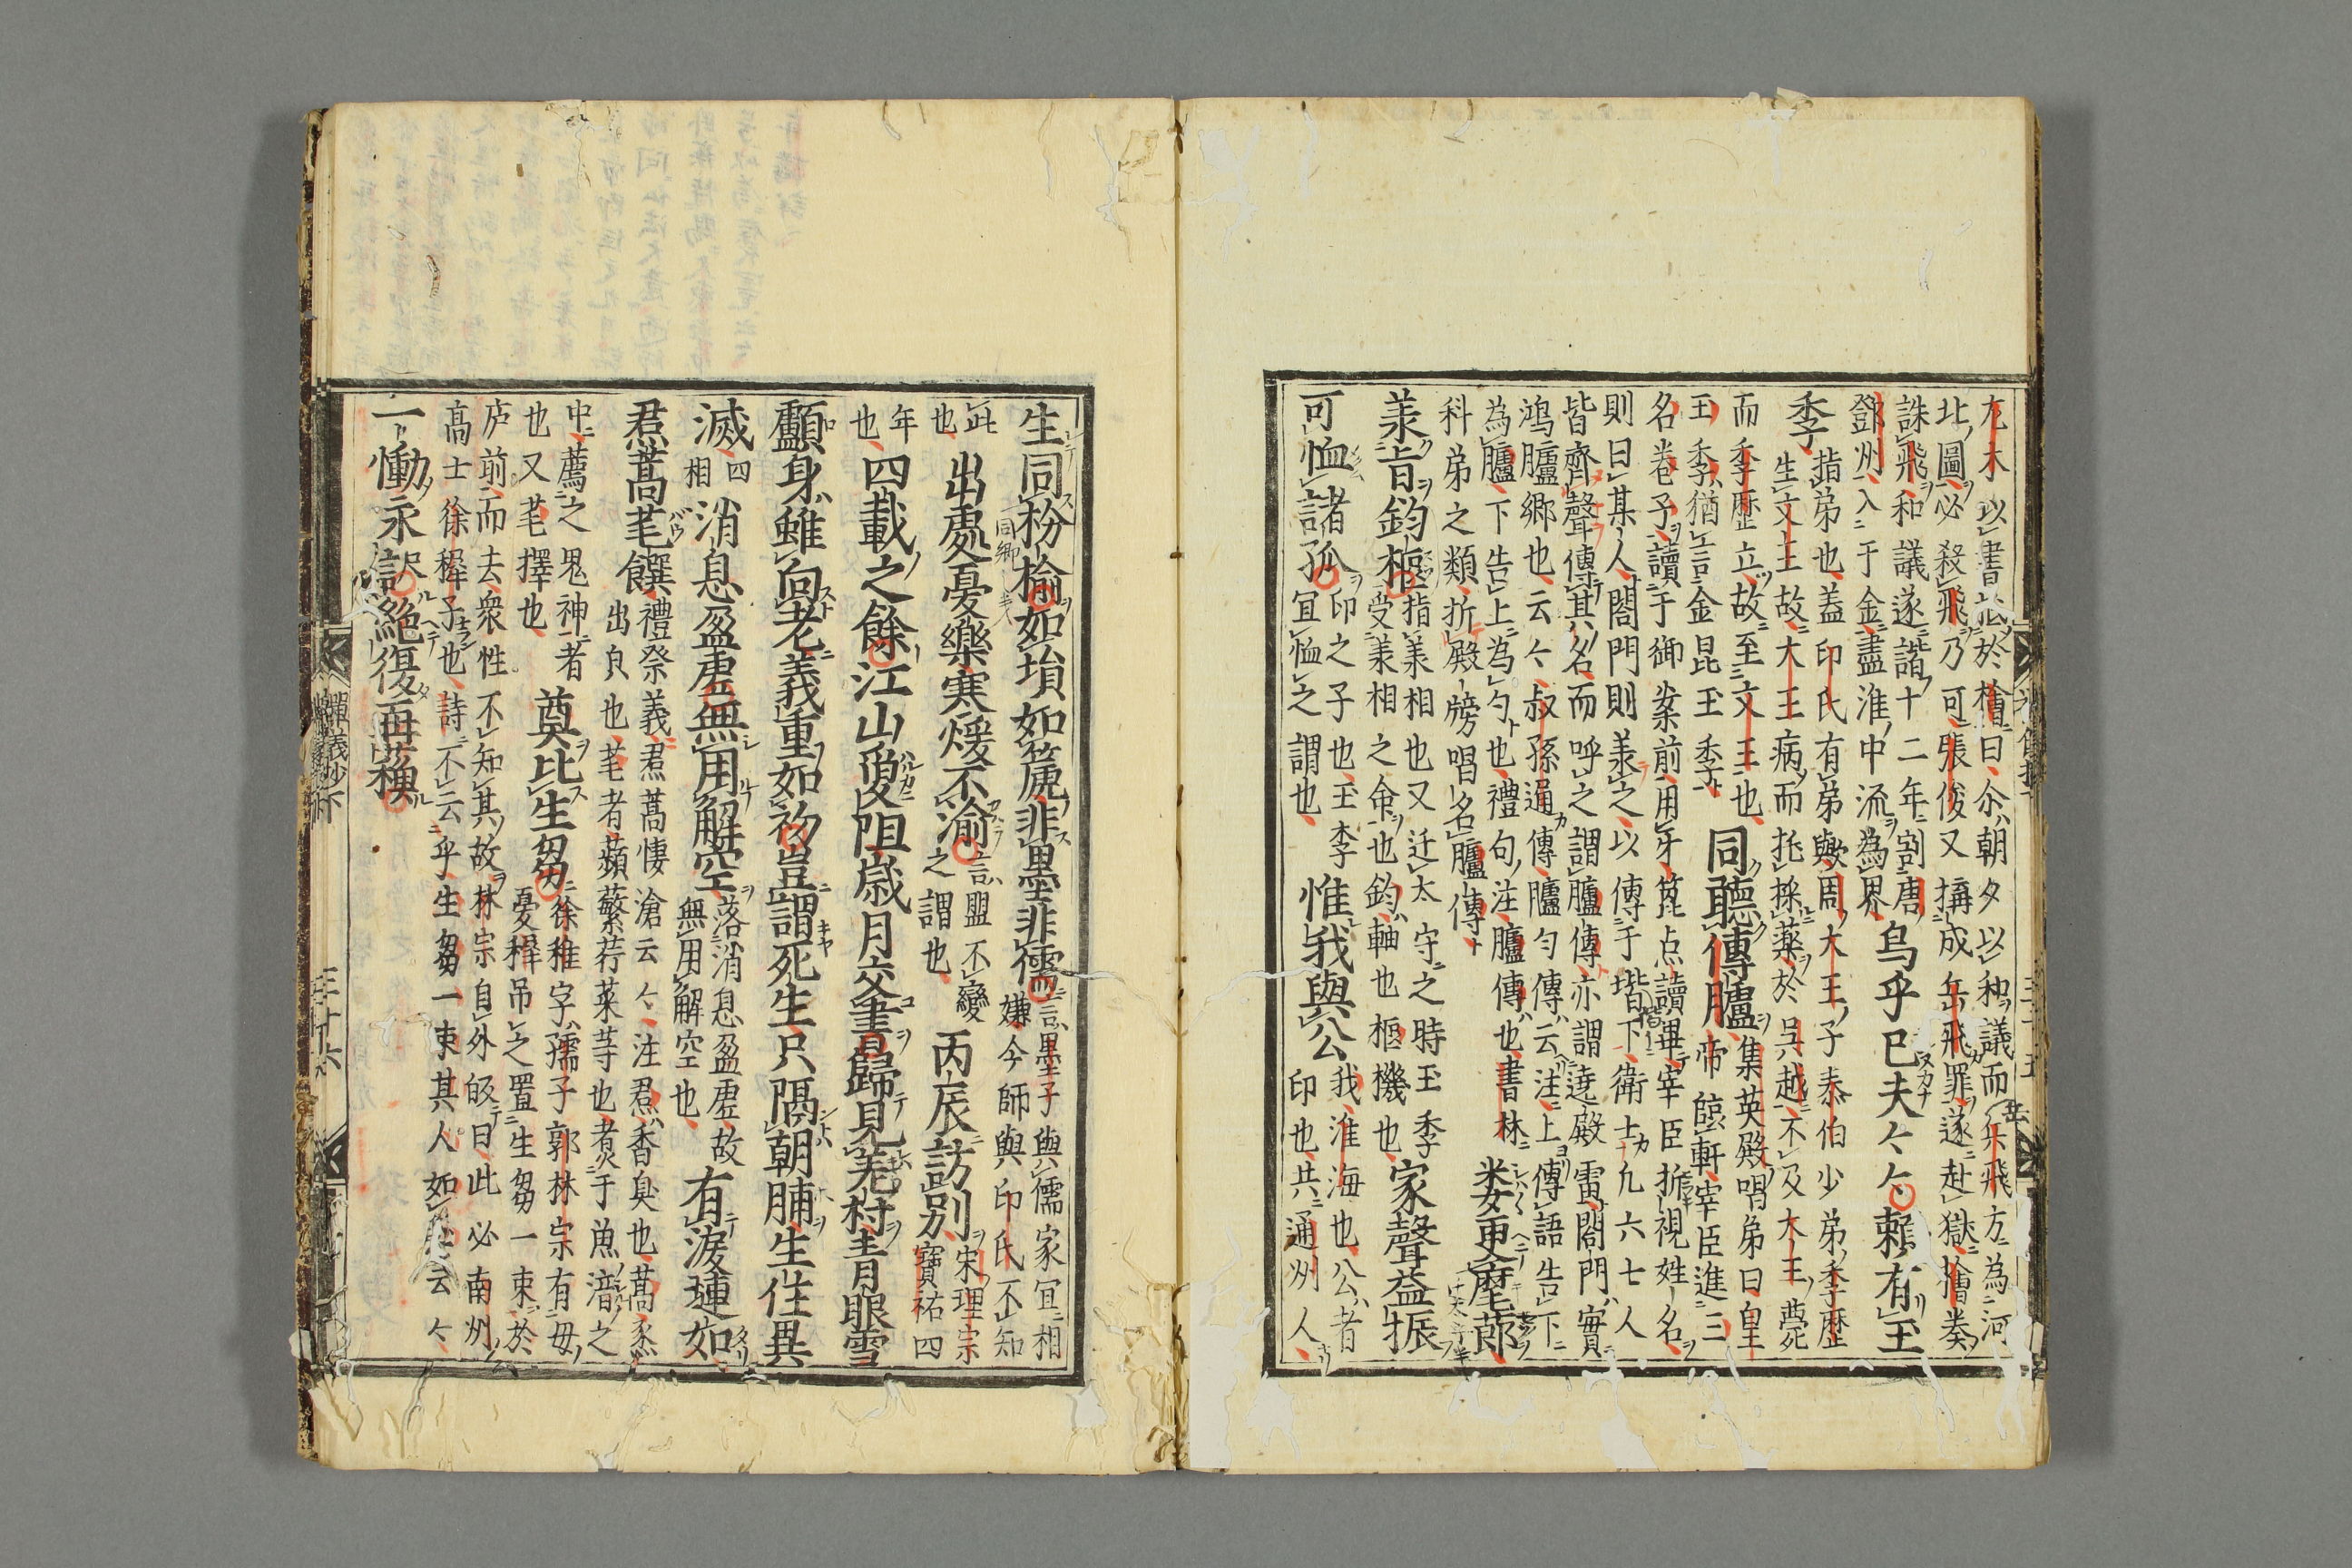 兀朮以書於檜曰尒朝夕以和議而岳飛方為河
北圖必殺飛乃可張俊又搆成岳飛罪遂赴獄檜奏
誅飛和議遂諧十二年割唐
鄧州入于金盡淮中流為界烏乎已夫〻〻賴有玉
季指弟也蓋印氏有弟與歟周大王子泰伯少弟季歷
生文王故大王病而托採藥於呉越不及大王薨
而季歷立故至文王也
王季猶言金昆玉季同聽傳臚集英殿唱弟曰皇
帝臨軒宰臣進三
名卷子讀于御案前用牙篦点讀畢宰臣折視姓名
則曰某人閤門則羕之以傳于堦下衛士凢六七人
皆齊聲傳其名而呼之謂臚傳亦謂遶殿雷閤門實
鴻臚鄉也云〻叔孫通傳臚句傳云注上傳語告下
為臚下告上為勾也禮句注臚傳也書林
科弟之類折殿牓唱名臚傳婁更麾莭
羕旨鈞樞指羕相也又迁太守之時玉季
受羕相之命也鈞軸也樞機也家聲益振
可恤諸孤印之子也玉季
宜恤之謂也惟我與公我淮海也公者
印也共通州人
生同枌榆如塤如篪非墨非儒言墨子與儒家宜相
嫌今師與印氏不知
此
也出處憂樂寒煖不渝言盟不變
之謂也丙辰訪別宋理宗
寶祐四
年
也四載之餘江山敻阻歳月交書歸見羌村青眼雪
顱身雖向老義重如初豈謂死生只隔朝脯生住異
滅四
相消息盈虗無用解空落消息盈虗故
無用解空也有淚璉如
焄蒿芼饌禮祭義焄蒿悽滄云〻注焄香臭也蒿烝
出皃也芼者蘋蘩荇菜䓁也煮于魚湆之
中薦之鬼神者
也又芼擇也奠比生芻徐稚字孺子郭林宗有毋
憂稺吊之置生芻一束於
庐前而去衆性不知其故林宗自外皈曰此必南州
高士徐稺子也詩不云乎生芻一束其人如玉云〻
一慟永訣絕復再蘓
禪儀抄下
三十六